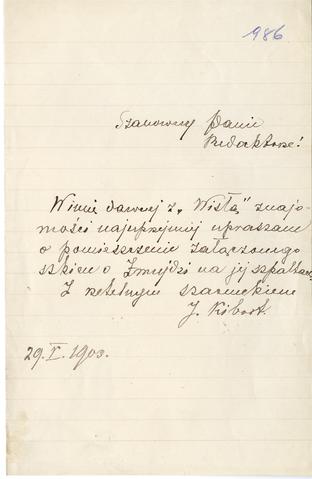 986
Szanowny Panie
Redaktorze!
W imię dawnej z „Wisłą" znajo-
mości najuprzejmiej upraszam
o pomieszczenie załączonego
szkicu o Żmujdzi na jej szpaltach
Z rzetelnym szacunkiem
J. Kibort.
29. X. 1903.